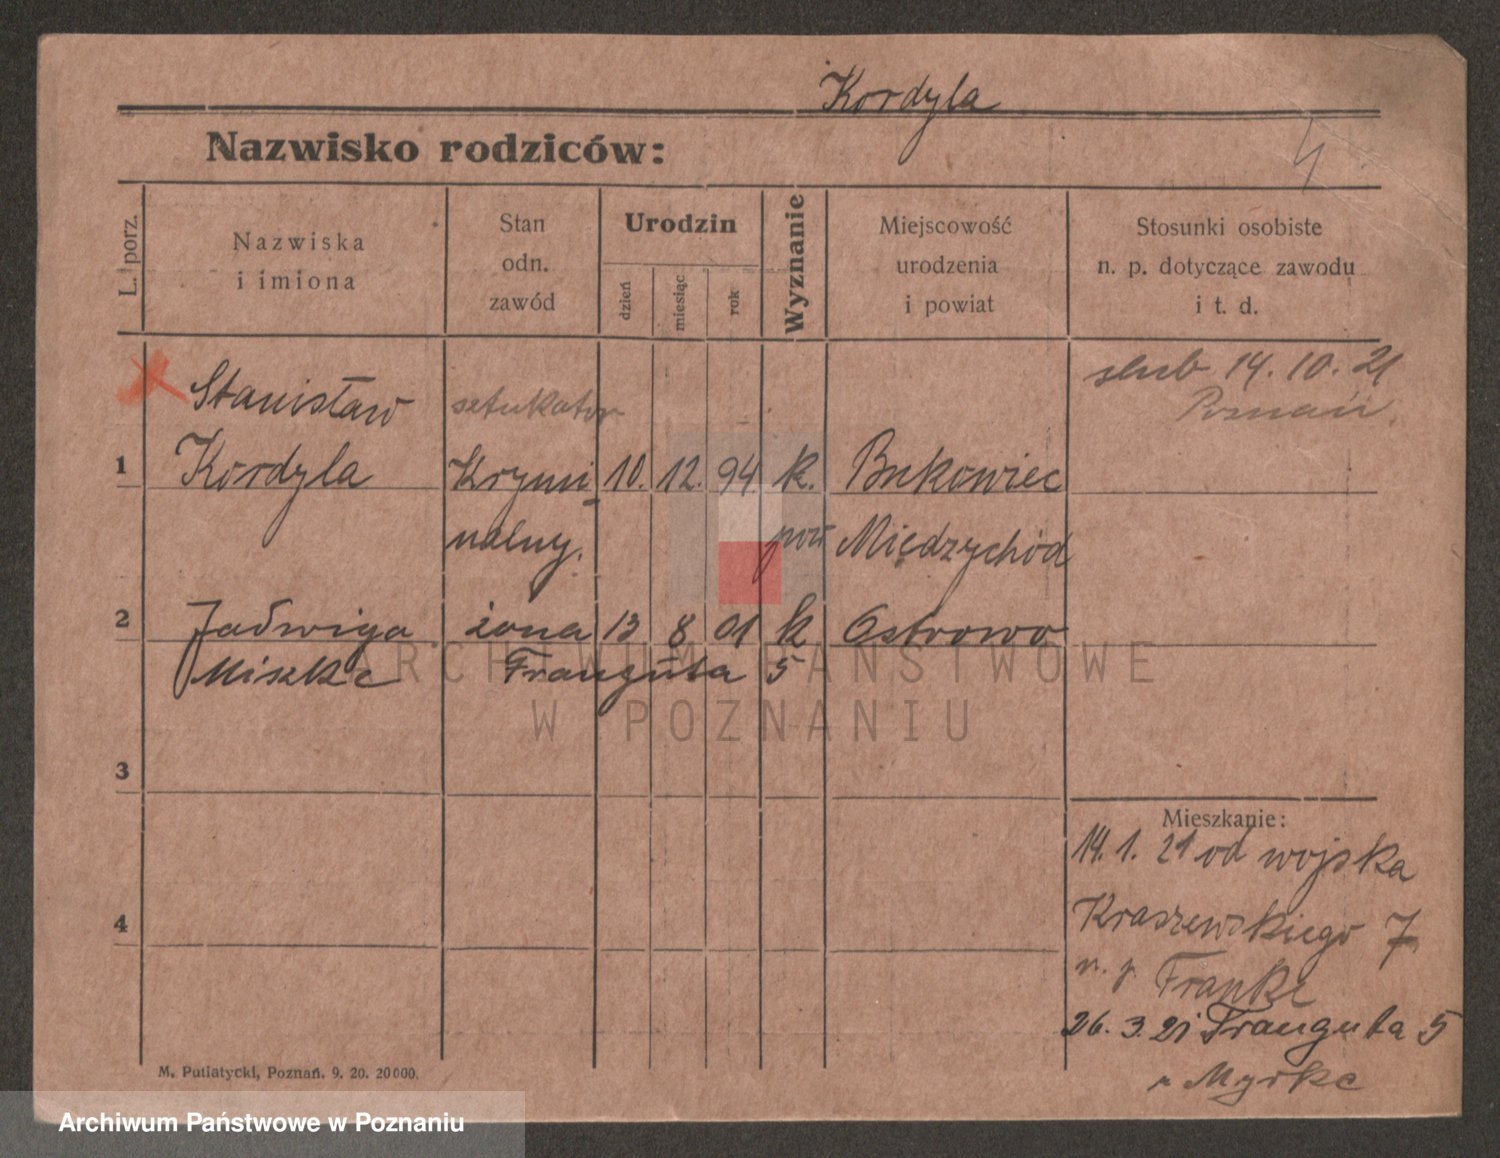 Kordyla
Nazwisko rodziców:
L. porz.
Nazwiska
i imiona
Stan
odn.
zawód
Urodzin
dzień
miesiąc
rok
Wyznanie
Miejscowość
urodzenia
i powiat
Stosunki osobiste
n. p. dotyczące zawodu
i t. d.
ślub 14. 10. 21
Poznań
Stanisław sztukator
1 Kordyla Krymi 10. 12. 94. k. Bukowiec
nalny. pow Międzychód
2 Jadwiga żona 13 8 01 k Ostrowo
Miszke Franguta 5
ARCHIWUM PAŃSTWOWE
W POZNANIU
3
4
Mieszkanie:
14. 1. 21 od wojska
Kraszewskiego 7
n. p. Franke
26. 3. 21 Franguta 5
Myrke
M. Putiatycki, Poznań. 9. 20. 20000.
Archiwum Państwowe w Poznaniu